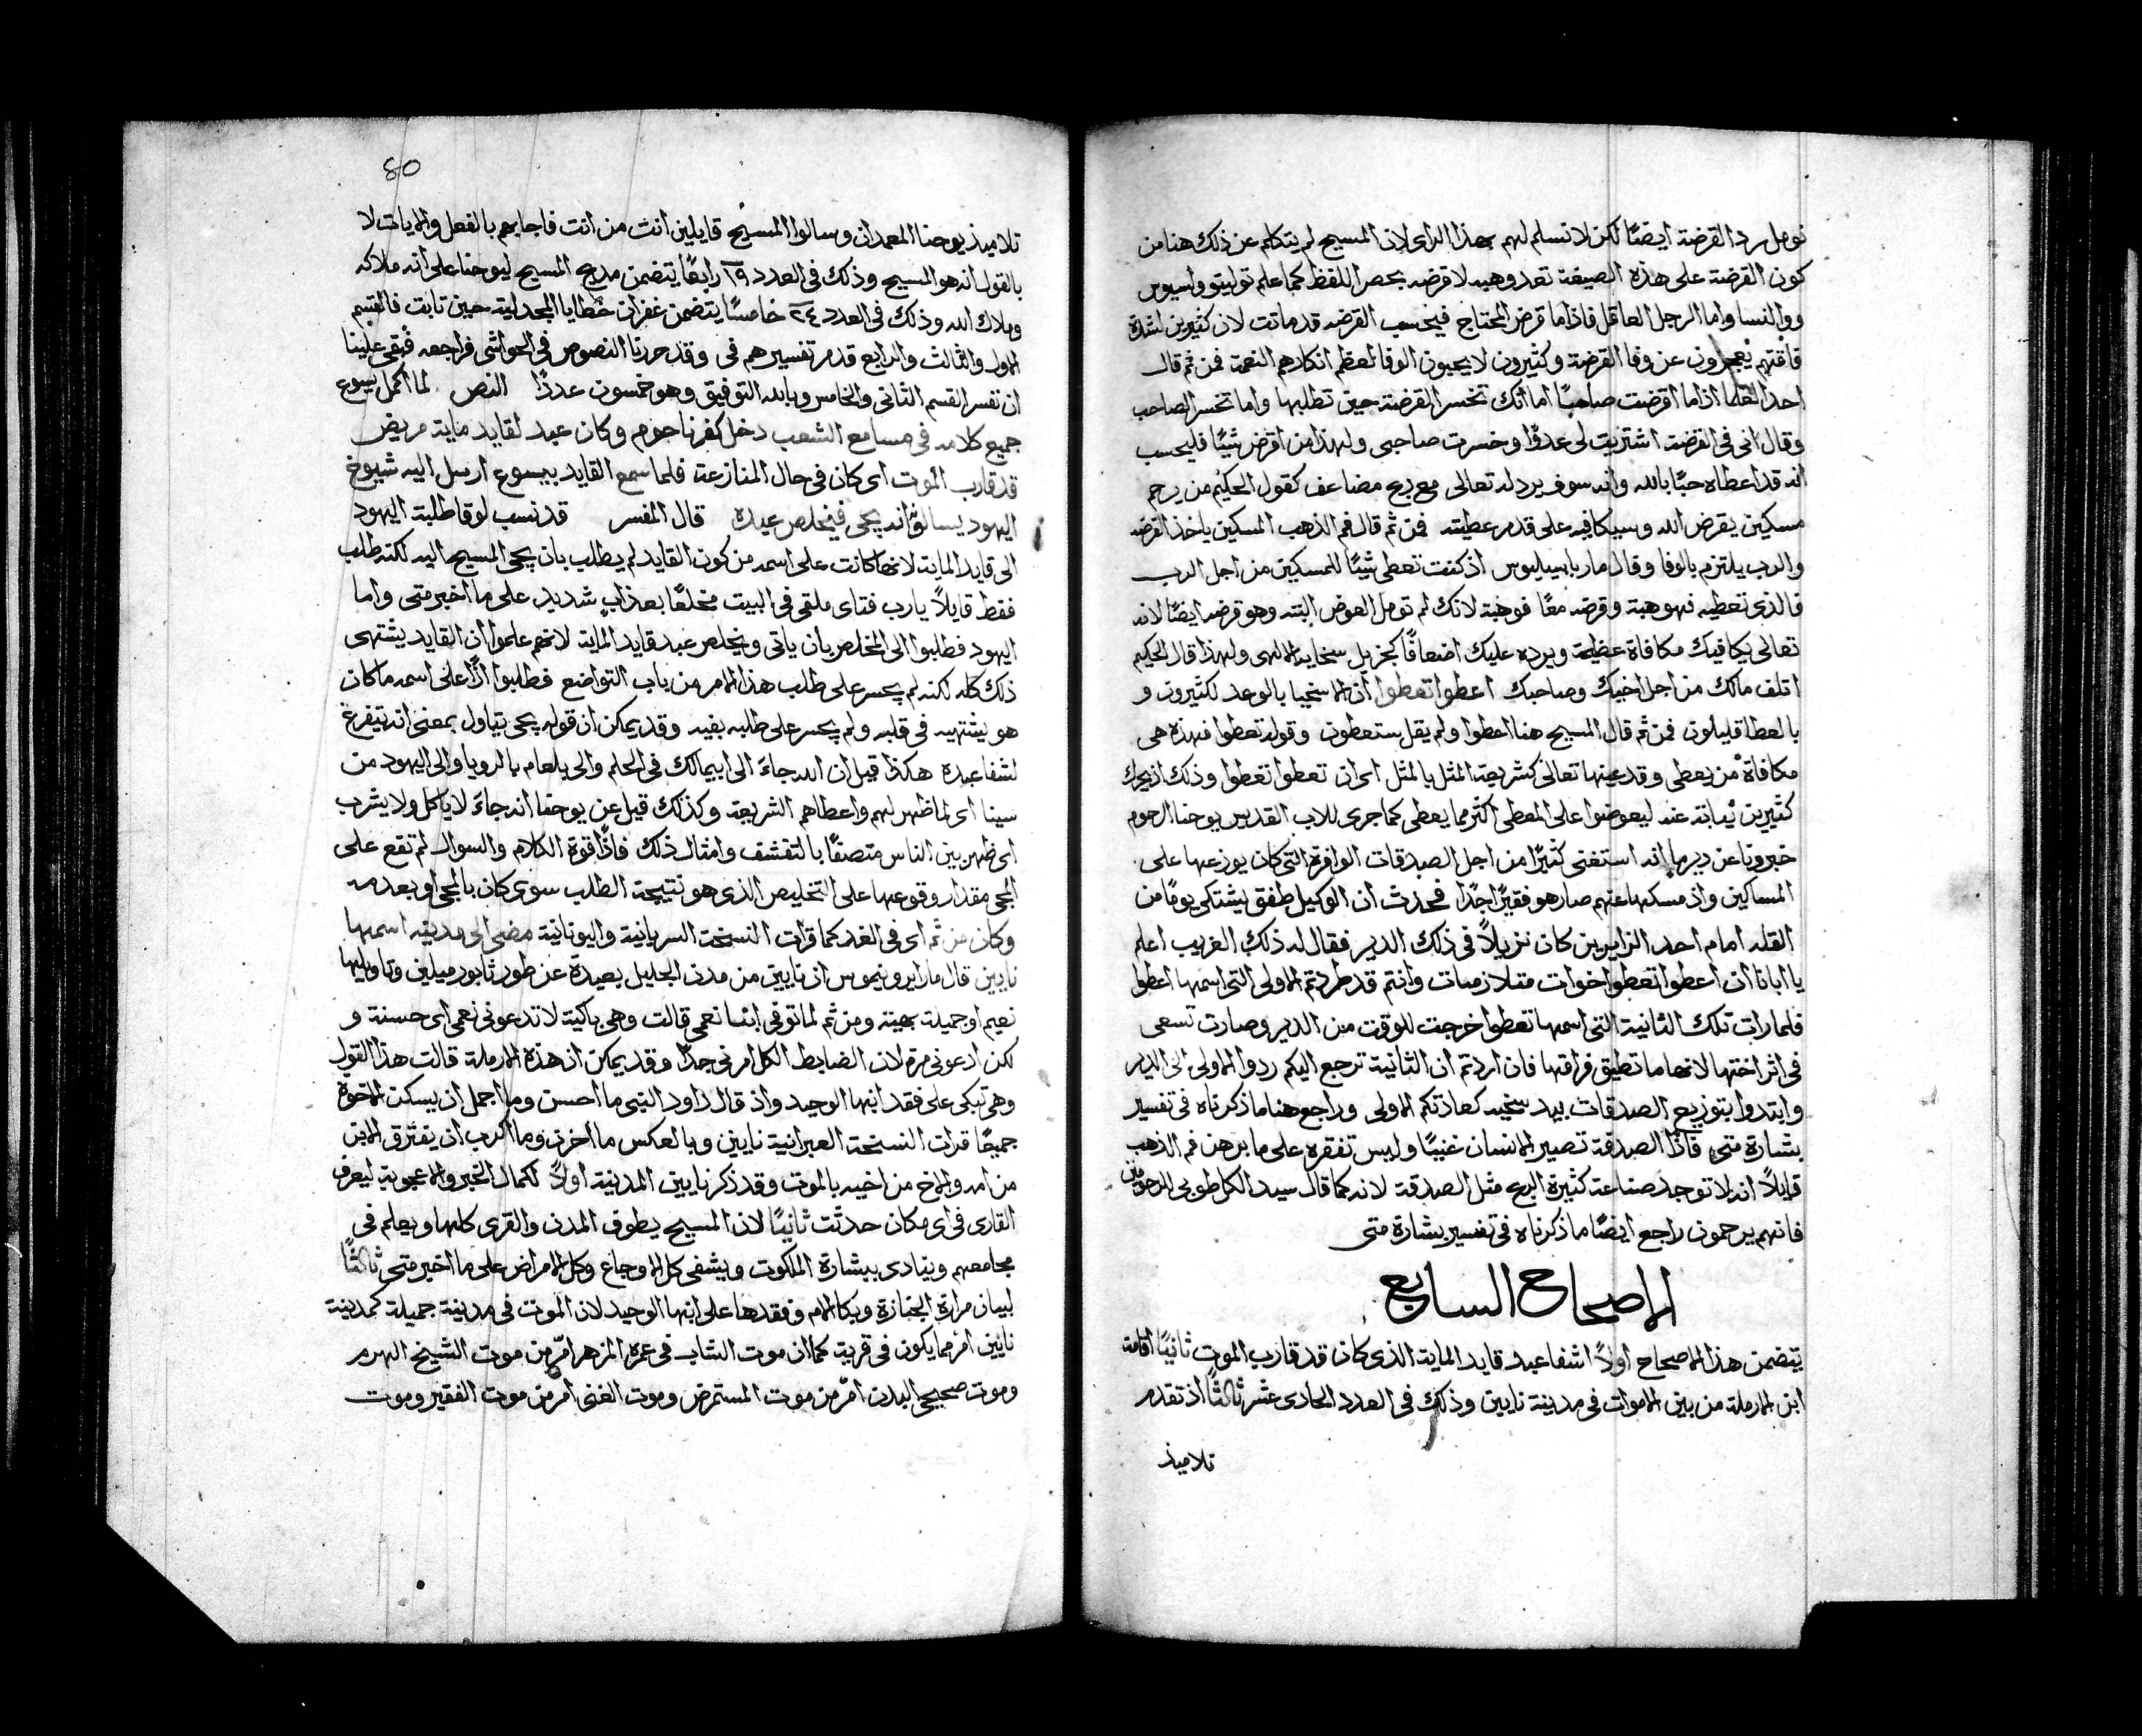 نومل رد القرضة ايضًا لكن لا نسلم لهم بهذا الراى لان المسيح لم يتكلم عن ذلك هنا من
كون القرضة على هذه الصيغة تعد وهبه لا قرضه بحصر اللفظ كما علم توليتو واسيوس
ووالنسا واما الرجل العاقل فاذا ما قرض المحتاج فيحسب القرضه قد ماتت لان كثيرين لشدة
فاقتهم يعجزون عن وفا القرضة وكثيرون لا يحبون الوفا لعظم انكارهم النعمة فمن ثم قال
احد العلما اذا ما اقرضت صاحبًا اما انك تخسر القرضة حين تطلبها واما تخسر الصاحب
وقال انى فى القرضة اشتريت لى عدوًا وخسرت صاحبى ولهذا من اقرض شيًا فليحسب
انه قد اعطاه حبًا بالله وانه سوف يرد له تعالى مع ربح مضاعف كقول الحكيم من يرحم
مسكين يقرض الله وسيكافيه على قدر عطيته فمن ثم قال فم الذهب المسكين ياخذ القرضه
والرب يلتزم بالوفا وقال مار باسيليوس اذ كنت تعطى شيًا للمسكين من اجل الرب
فالذى تعطيه فهو هبة وقرضه معًا فوهبة لانك لم تومل العوض البته وهو قرضه ايضًا لانه
تعالى يكافيك مكافاة عظيمة ويرده عليك اضعافًا كجزيل سخايه الالهى ولهذا قال الحكيم
اتلف مالك من اجل اخيك وصاحبك اعطوا تعطوا ان الاسخيا بالوعد لكثيرون و
بالعطا قليلون فمن ثم قال المسيح هنا اعطوا ولم يقل ستعطون وقوله تعطوا فهذه هى
مكافاة من يعطى وقد عينها تعالى كشريعة المثل بالمثل اى ان تعطوا تعطوا وذلك اذ يحرك
كثيرين نيابة عنه ليعوضوا على المعطى اكثر مما يعطى كما جرى للاب القديس يوحنا الرحوم
خبرونا عن دير ما انه استغنى كثيرًا من اجل الصدقات الوافرة التى كان يوزعها على
المساكين واذ مسكها عنهم صار هو فقيرًا جدًا فحدث ان الوكيل طفق يشتكى يومًا من
القله امام احد الزايرين كان نزيلاً فى ذلك الدير فقال له ذلك الغريب اعلم
يا ابانا ان اعطوا تعطوا اخوات متلازمات وانتم قد طردتم الاولى التى اسمها اعطوا
فلما رات تلك الثانية التى اسمها تعطوا خرجت للوقت من الدير وصارت تسعى
فى اثر اختها لانها ما تطيق فراقها فان اردتم ان الثانية ترجع اليكم ردوا الاولى الى الدير
وابتدوا بتوزيع الصدقات بيد سخيه كعادتكم الاولى وراجع هنا ما ذكرناه فى تفسير
بشارة متى فاذًا الصدقة تصير الانسان غنيًا وليس تفقره على ما برهن فم الذهب
قايلاً انه لا توجد صناعة كثيرة الربح مثل الصدقة لانه كما قال سيد الكل طوبى للرحومين
فانهم يرحمون راجع ايضًا ما ذكرناه فى تفسير بشارة متى
الاصحاح السابع
يتضمن هذا الاصحاح اولاً اشفا عبد قايد الماية الذى كان قد قارب الموت ثانيًا اقامة
ابن الارملة من بين الاموات فى مدينة نايين وذلك فى العدد الحادى عشر ثالثًا اذ تقدم
تلاميذ
80
تلاميذ يوحنا المعمدان وسالوا المسيح قايلين انت من انت فاجابهم بالفعل والايات لا
بالقول انه هو المسيح وذلك فى العدد ١٩ رابعًا يتضمن مديح المسيح ليوحنا على انه ملاكه
وملاك الله وذلك فى العدد ٢٤ خامسًا يتضمن غفران خطايا المجدلية حين تابت فالقسم
الاول والثالث والرابع قد مر تفسيرهم فى وقد حررنا النصوص فى الحواشى فراجعه فبقى علينا
ان نفسر القسم الثانى والخامس وبالله التوفيق وهو خمسون عددًا النص لما اكمل يسوع
جميع كلامه فى مسامع الشعب دخل كفرناحوم وكان عبد لقايد ماية مريض
قد قارب الموت اى كان فى حال المنازعة فلما سمع القايد بيسوع ارسل اليه شيوخ
اليهود يسالونه انه يجى فيخلص عبده قال المفسر قد نسب لوقا طلبة اليهود
الى قايد الماية لانها كانت على اسمه من كون القايد لم يطلب بان يجى المسيح اليه لكنه طلب
فقط قايلاً يارب فتاى ملقى فى البيت مخلعًا بعذاب شديد على ما اخبر متى واما
اليهود فطلبوا الى المخلص بان ياتى ويخلص عبد قايد الماية لانهم علموا ان القايد يشتهى
ذلك كله لكنه لم يجسر على طلب هذا الامر من باب التواضع فطلبوا اذًا على اسمه ما كان
هو يشتهيه فى قلبه ولم يجسر على طلبه بفيه وقد يمكن ان قوله يجى يتاول بمعنى انه يتفرغ
لشفا عبده هكذا قيل ان الله جاء الى ابيمالك فى الحلم والى بلعام بالرويا والى اليهود من
سينا اى لما ظهر لهم واعطاهم الشريعة وكذلك قيل عن يوحنا انه جاء لا ياكل ولا يشرب
اى ظهر بين الناس متصفًا بالتقشف وامثال ذلك فاذًا قوة الكلام والسوال لم تقع على
المجى مقدار وقوعها على التخليص الذى هو نتيجة الطلب سوى كان بالمجى او بعدمه
وكان من ثم اى فى الغد كما قرات النسخة السريانية واليونانية مضى الى مدينه اسمها
نايين قال مار ايرونيموس ان نايين من مدن الجليل بعيدة عن طور ثابور ميلين وتاويلها
نعيم او جميلة بهية ومن ثم لما توفى ابنا نعمى قالت وهى باكية لا تدعونى نعمى اى حسنة و
لكن ادعونى مرة لان الضابط الكل امرنى جدًا وقد يمكن ان هذه الارملة قالت هذا القول
وهى تبكى على فقد ابنها الوحيد واذ قال داود النبى ما احسن وما اجمل ان يسكن الاخوة
جميعًا قرات النسخة العبرانية نايين وبالعكس ما احزن وما اكرب ان يفترق الابن
من امه والاخ من اخيه بالموت وقد ذكر نايين المدنية اولاً لكمال الخبر والاعجوبة ليعرف
القارى فى اى مكان حدثت ثانيًا لان المسيح يطوف المدن والقرى كلها ويعلم فى
مجامعهم وينادى ببشارة الملكوت ويشفى كل الاوجاع وكل الامراض على ما اخبر متى ثالثًا
لبيان مرارة الجنازة وبكا الام وفقدها على ابنها الوحيد لان الموت فى مدينة جميلة كمدنية
نايين امر مما يكون فى قرية كما ان موت الشاب فى عمره المزهر امر من موت الشيخ الهرم
وموت صحيح البدن امر من موت المستمرض وموت الغنى امر من موت الفقير وموت